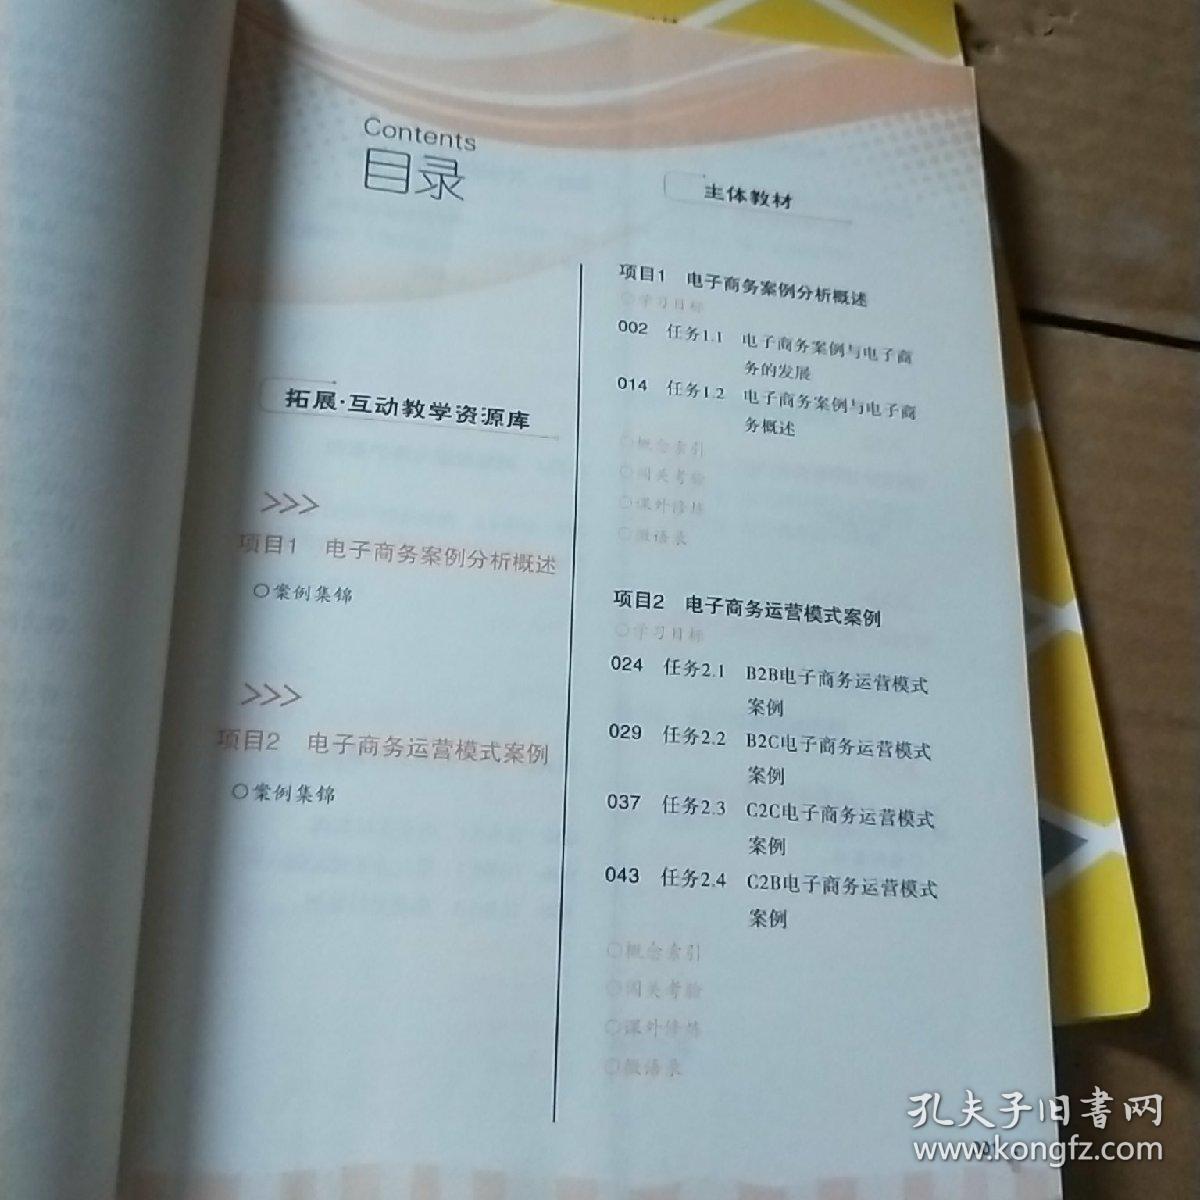 Contents
目录
拓展·互动教学资源库
>>>
项目1 电子商务案例分析概述
○案例集锦
>>>
项目2 电子商务运营模式案例
○案例集锦
主体教材
项目1 电子商务案例分析概述
○学习目标
002 任务1.1 电子商务案例与电子商
务的发展
014 任务1.2 电子商务案例与电子商
务概述
○概念索引
○闯关考验
○课外修炼
○微语录
项目2 电子商务运营模式案例
○学习目标
024 任务2.1 B2B电子商务运营模式
案例
029 任务2.2 B2C电子商务运营模式
案例
037 任务2.3 C2C电子商务运营模式
案例
043 任务2.4 C2B电子商务运营模式
案例
○概念索引
○闯关考验
○课外修炼
○微语录
孔夫子旧書网
www.kongfz.com